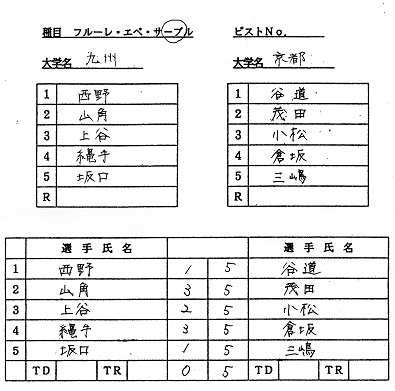 種目 フルーレ・エペ・サーブル ピストNo.
大学名 九州 大学名 京都
1 西野 1 谷道
2 山角 2 茂田
3 上谷 3 小松
4 縄手 4 倉坂
5 坂口 5 三嶋
R R
選手氏名 選手氏名
1 西野 1 5 谷道
2 山角 3 5 茂田
3 上谷 2 5 小松
4 縄手 3 5 倉坂
5 坂口 1 5 三嶋
TD TR 0 5 TD TR